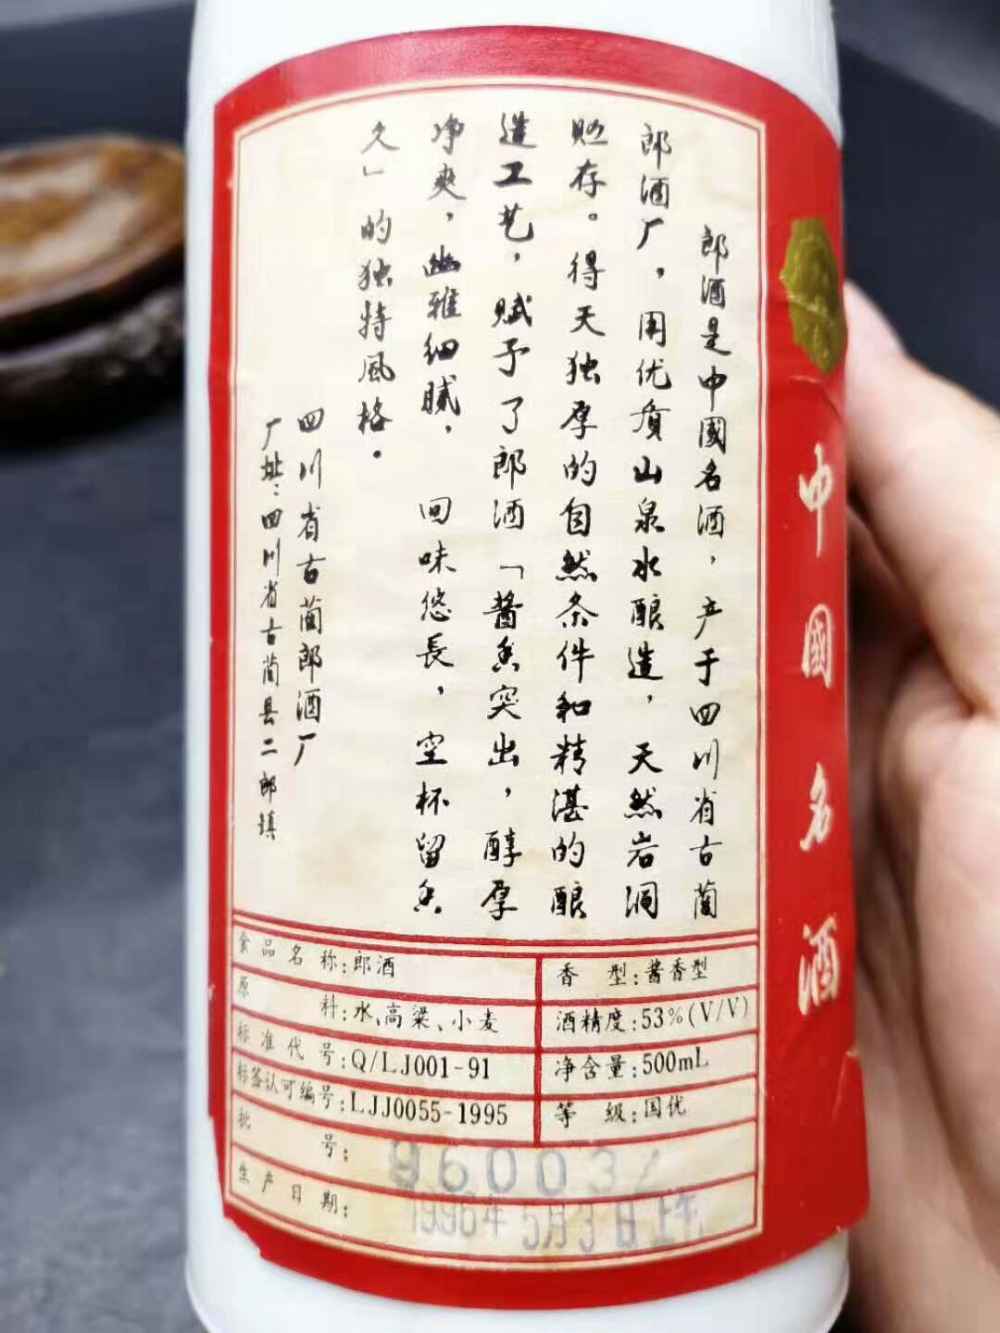 郎酒是中國名酒，产于四川省古蔺
郎酒厂，用优质山泉水酿造，天然岩洞
贮存。得天独厚的自然条件和精湛的酿
造工艺，赋予了郎酒「酱香突出，醇厚
净爽，幽雅细腻，回味悠長，空杯留香
久」的独特風格。
四川省古蔺郎酒厂
厂址：四川省古蔺县二郎镇
中國名酒
食品名称：郎酒
香型：酱香型
原料：水、高粱、小麦
酒精度：53%(V/V)
标准代号：Q/LJ001-91
净含量：500mL
标签认可编号：LJJ0055-1995
等级：国优
批号：
生产日期：1996年5月3日上午